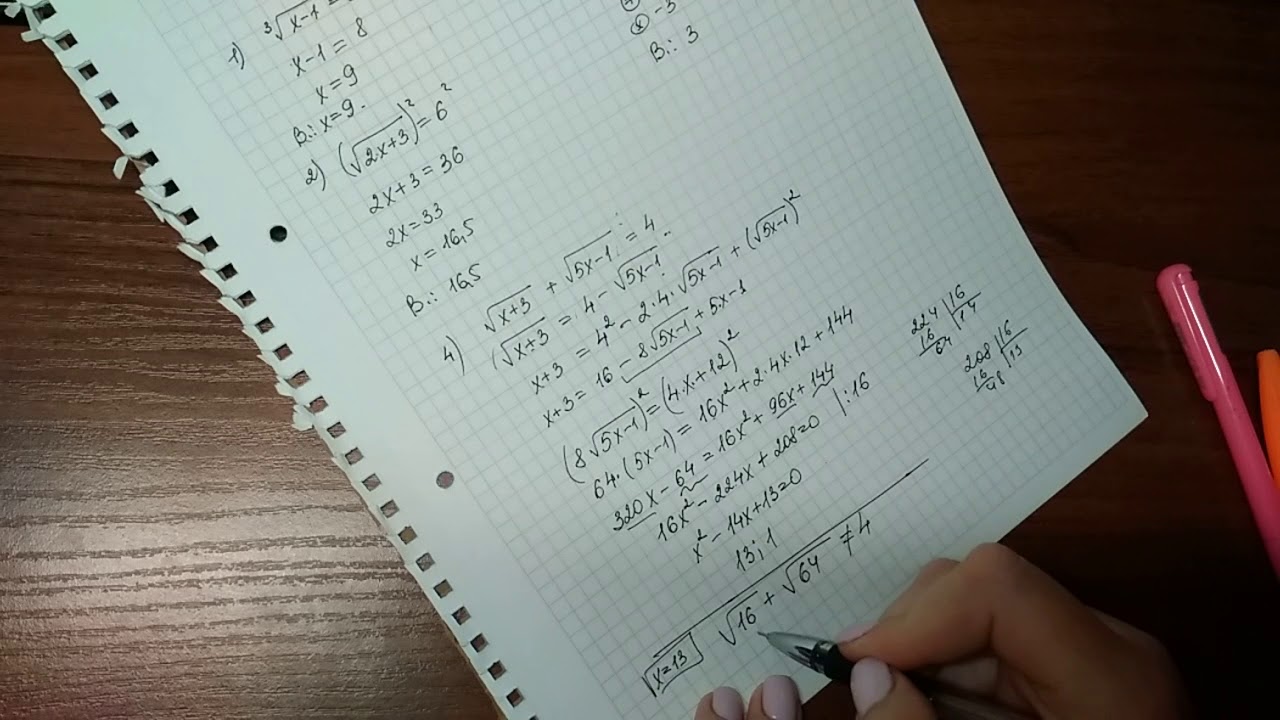 1) ³√x-1 =
x-1 = 8
x = 9
В.: x=9.
2) (√2x+3)² = 6²
2x+3 = 36
2x=33
x = 16,5
В.: 16,5
-3
В.: 3
4) √x+3 + √5x-1 = 4
(√x+3 = 4 - √5x-1.
x+3 = 4² - 2·4·√5x-1 + (√5x-1)²
x+3 = 16 - 8√5x-1 + 5x-1
(8√5x-1)² = (4x+12)²
64·(5x-1) = 16x² + 2·4x·12 + 144
320x - 64 = 16x² + 96x + 144
16x² - 224x + 208=0 |:16
x² - 14x+13=0
13; 1
x=13 √16 + √64 ≠ 4
224 | 16
16 14
64
208 | 16
16 13
48